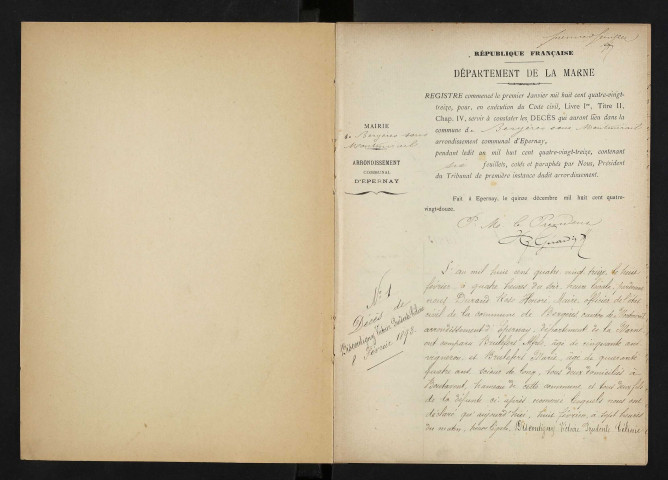 RÉPUBLIQUE FRANÇAISE
DÉPARTEMENT DE LA MARNE
REGISTRE commencé le premier Janvier mil huit cent quatre-vingt-
treize, pour, en exécution du Code civil, Livre Ier, Titre II,
Chap. IV, servir à constater les DÉCÈS qui auront lieu dans la
commune de Bergères sous Montmirail
arrondissement communal d'Epernay,
pendant ledit an mil huit cent quatre-vingt-treize, contenant
feuillets, cotés et paraphés par Nous, Président
du Tribunal de première instance dudit arrondissement.
Fait à Epernay, le quinze décembre mil huit cent quatre-
vingt-douze.
P. Mr le Président
MAIRIE
de Bergères sous
Montmirail
ARRONDISSEMENT
COMMUNAL
D'EPERNAY
No 1
Décès de
8 Février 1893
L'an mil huit cent quatre vingt treize, le huit
février, à quatre heures du soir, heure légale, pardevant
nous Durand officier de l'état
civil de la commune de Bergères canton de Montmirail
arrondissement d'Epernay, département de la Marne
ont comparu âgé de cinquante ans
vigneron, et âgé de quarante
quatre ans, tous deux domiciliés à
hameau de cette commune, et tous deux fils
de la défunte ci après nommée lesquels nous ont
déclaré que aujourd'hui, huit février, à sept heures
du matin, heure légale,